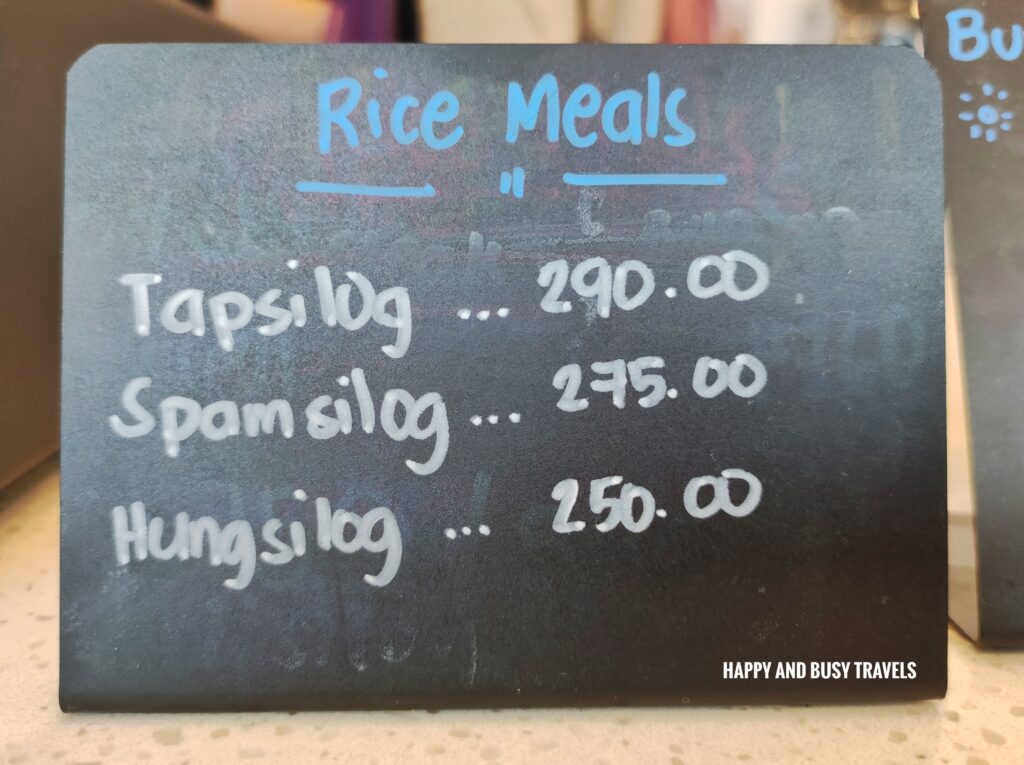 Rice Meals
"
Tapsilog ... 290.00
Spamsilog ... 275.00
Hungsilog ... 250.00
HAPPY AND BUSY TRAVELS
Bu